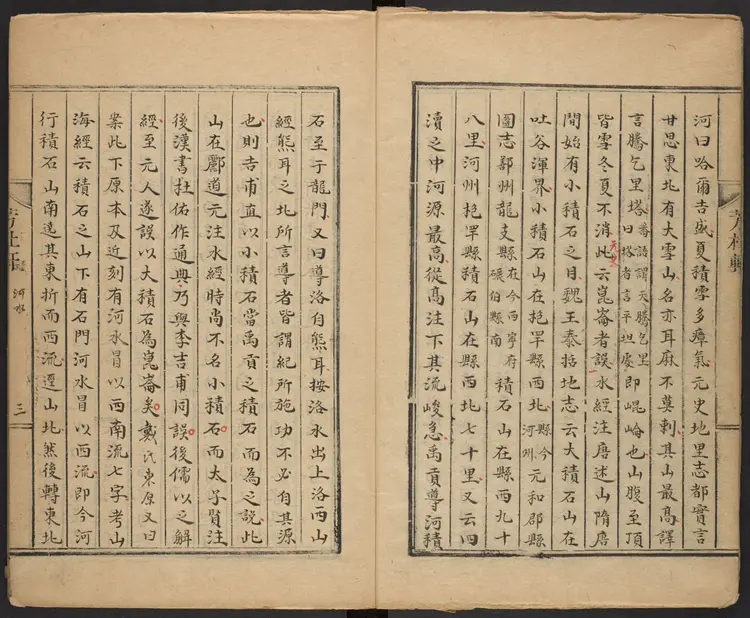 河曰哈爾吉盛夏積雪多瘴氣元史地里志都實言
甘思東北有大雪山名亦耳麻不莫剌其山最高譯
言騰乞里塔番語謂天騰乞里曰塔者言平坦處即崐崘也山腹至頂
皆雪冬夏不消此云崑崙者誤水經注唐述山隋唐
間始有小積石之目魏王泰括地志云大積石山在
吐谷渾界小積石山在抱罕縣西北縣今河州元和郡縣
圖志鄯州龍支縣在今西寧府碾伯縣南積石山在縣西九十
八里河州抱罕縣積石山在縣西北七十里又云四
瀆之中河源最高從高注下其流峻急禹貢導河積
石至于龍門又曰導洛自熊耳按洛水出上洛西山
經熊耳之北所言導者皆謂紀所施功不必自其源
也則吉甫直以小積石當禹貢之積石而為之說此
山在酈道元注水經時尚不名小積石而太子賢注
後漢書杜佑作通典乃與李吉甫同誤後儒以之解
經至元人遂誤以大積石為崑崙矣戴氏東原又曰
案此下原本及近刻有河水冒以西南流七字考山
海經云積石之山下有石門河水冒以西流即今河
行積石山南遶其東折而西流逕山北然後轉東北
河水
三